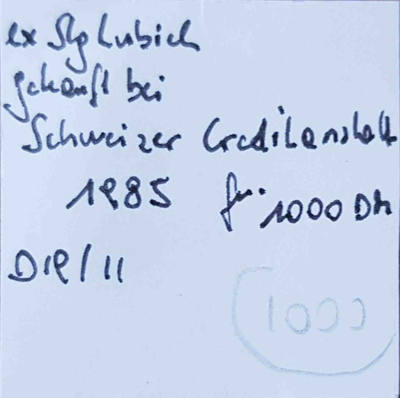 ex Slg Lubich
gekauft bei
Schweizer Creditanstalt
1985 für 1000 DM
D19/11
1000